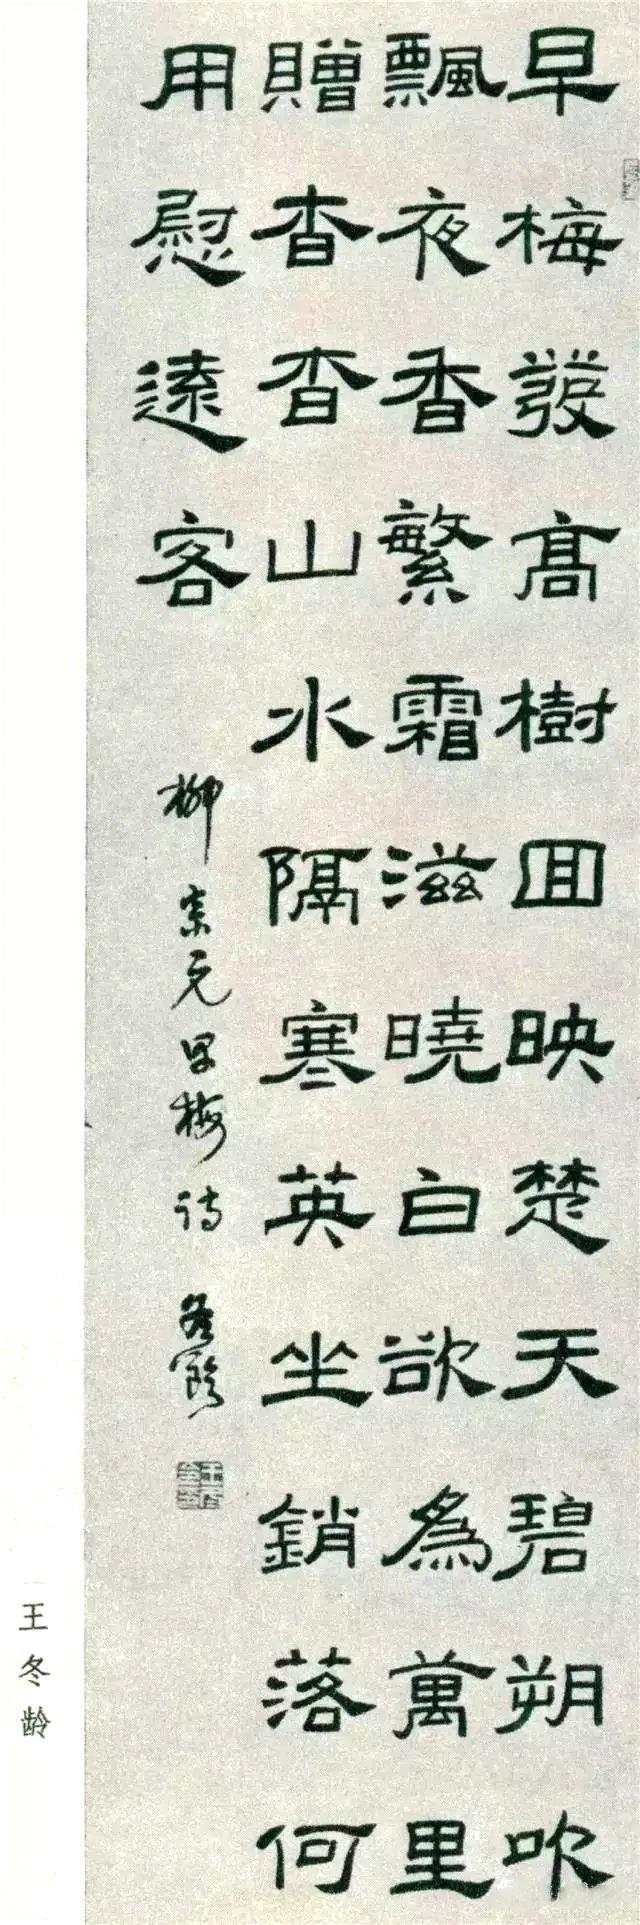 早梅發高樹回映楚天碧朔吹
飄夜香繁霜滋曉白欲為萬里
贈杳杳山水隔寒英坐銷落何
用慰遠客
柳宗元早梅詩 冬齡
王冬龄